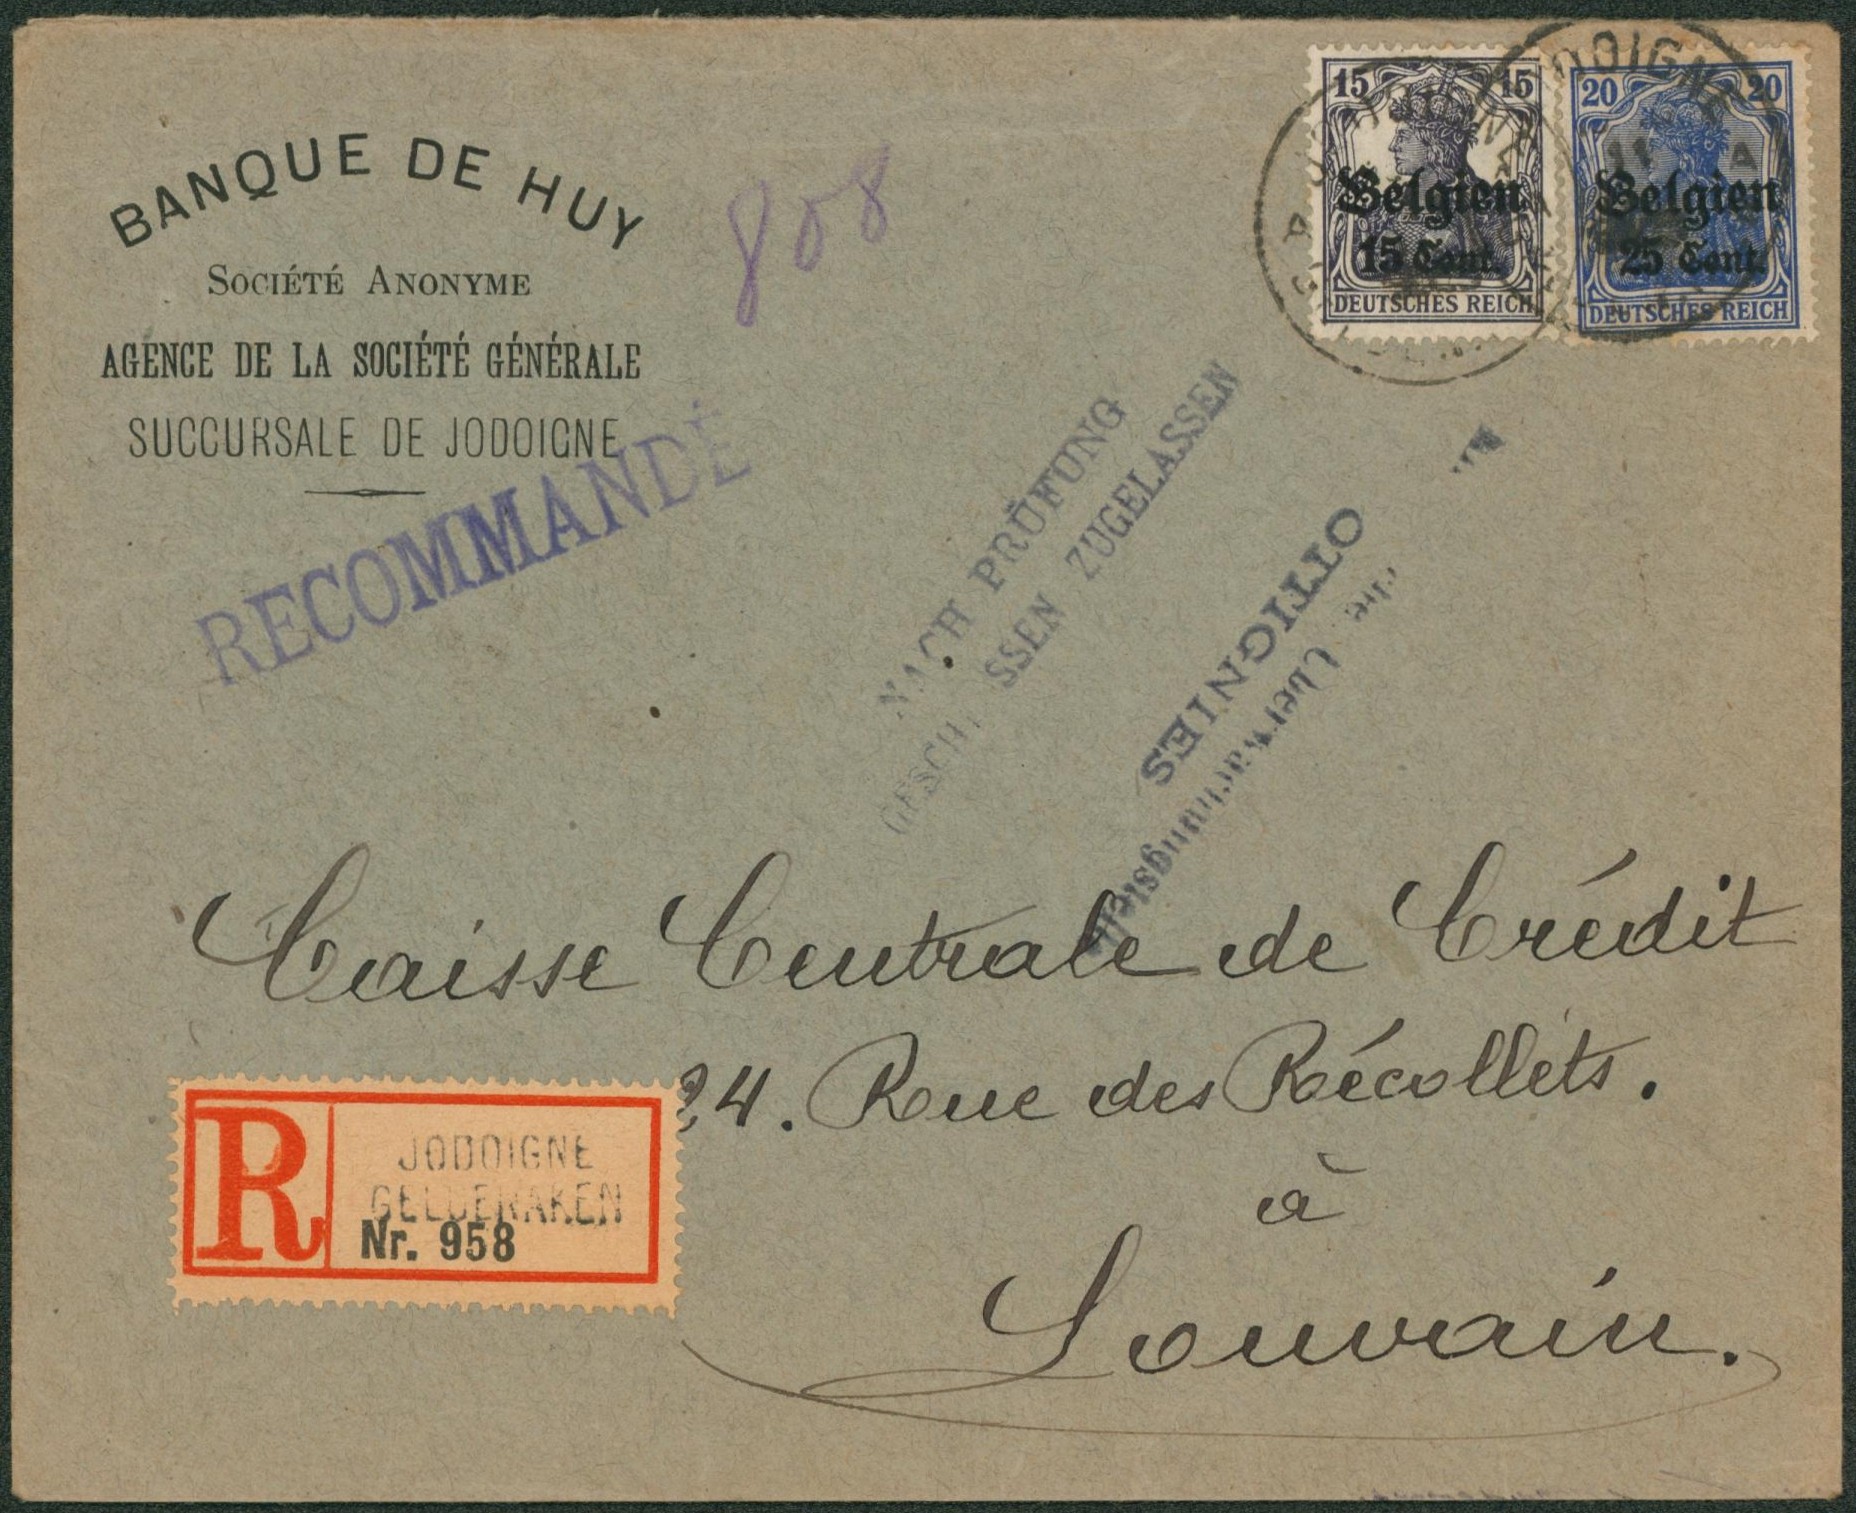 BANQUE DE HUY
SOCIÉTÉ ANONYME
AGENCE DE LA SOCIÉTÉ GÉNÉRALE
SUCCURSALE DE JODOIGNE
808
RECOMMANDÉ
15 15
Belgien
15 Cent.
DEUTSCHES REICH
20 20
Belgien
25 Cent.
DEUTSCHES REICH
NACH PRÜFUNG
GESCH SSEN ZUGELASSEN
OTTIGNIES
Überwachungsstelle
Caisse Centrale de Crédit
24. Rue des Récollets.
à
Louvain.
R
JODOIGNE
GELDENAKEN
Nr. 958